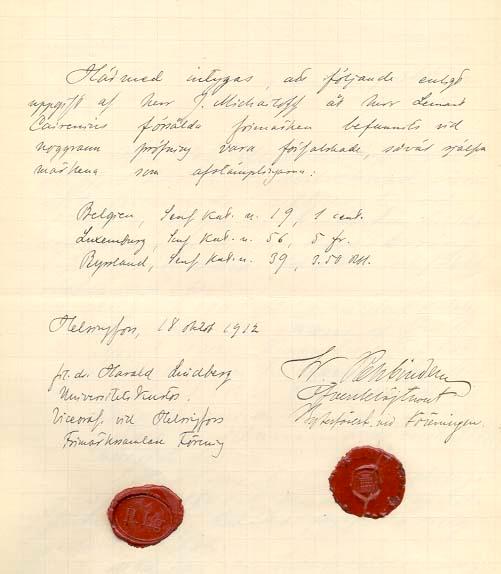 Härmed intygas, att följande enligt
uppgift af herr J. Michailoff åt herr Lennart
försålda frimärken befunnits vid
noggrann pröfning vara förfalskade, såväl själfva
märkena som afstämplingarna:
Belgien, Senf Kat. n. 19, 1 cent.
Luxemburg, Senf Kat. n. 56, 5 fr.
Ryssland, Senf Kat. n. 39, 3.50 Rbl.
Helsingfors, 18 oktob 1912
fil. dr. Harald Lindberg
Universitets Kustos.
Viceordf. vid Helsingfors
Frimärkssamlare Förening
W.
vid Föreningen.